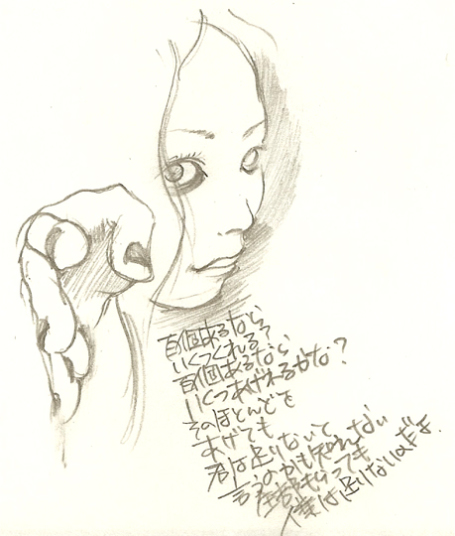 百個あるなら
いくつくれる?
百個あるなら
いくつあげれるかな?
そのほとんどを
あげても
君は足りないって
言うのかも知れない
全部もらっても
僕は足りないのだよ.